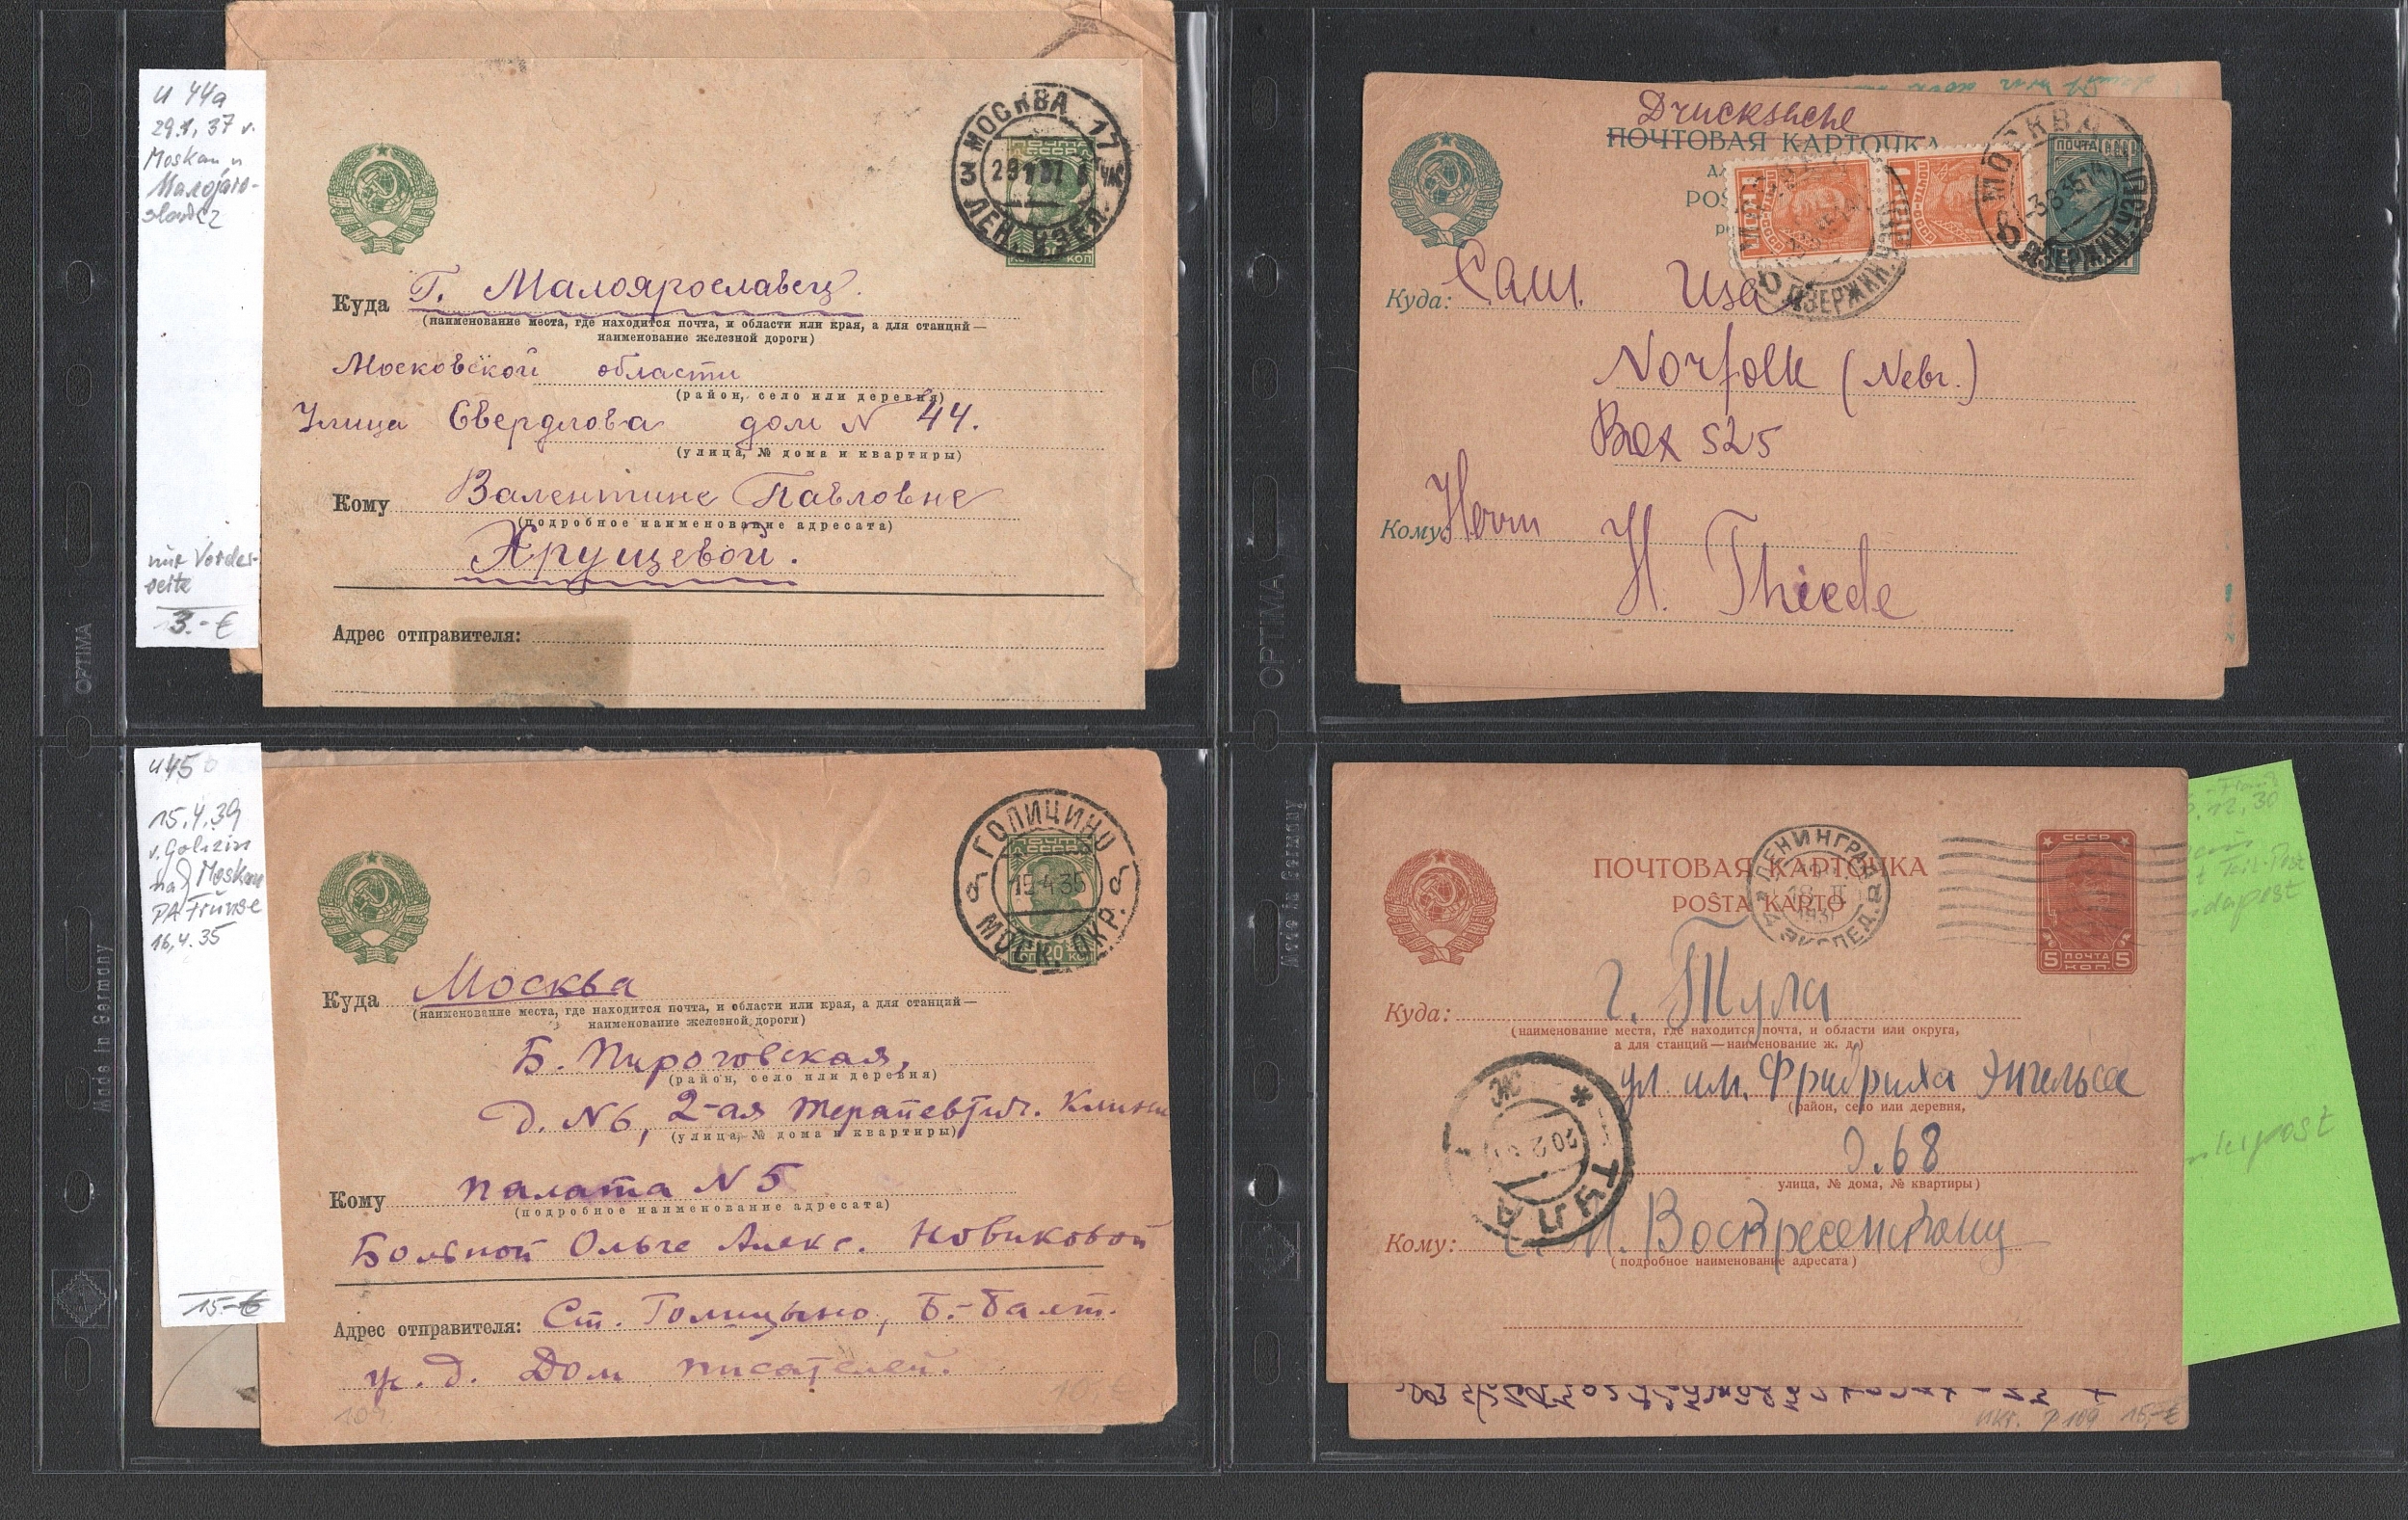 U 44a
29.1.37 v.
Moskau n
Malojaro-
slavez
nur Vorder-
seite
3.-€
МОСКВА 17
ЛЕН. ЭЗЕЛ.
Куда Г. Малоярославец.
(наименование места, где находится почта, и области или края, а для станций —
наименование железной дороги)
Московской области
(район, село или деревня)
Улица Свердлова дом N 44.
(улица, № дома и квартиры)
Кому Валентине Павловне
(подробное наименование адресата)
Хрущевой.
Адрес отправителя:
Drucksache
ПОЧТОВАЯ КАРТОЧКА
ПОЧТА
МОСКВА
6 ДЗЕРЖИН.
Куда: Саш. Usa
Norfolk (Nebr.)
Box 525
Кому Herrn
H. Thiede
OPTIMA
OPTIMA
U45b
15.4.39
v. Golizin
nach Moskau
PA Frunse
16.4.35
15.-€
ГОЛИЦИНО
15-4-35
МОСК. ОКР.
20
Куда Москва
(наименование места, где находится почта, и области или края, а для станций —
наименование железной дороги)
Б. Пироговская,
(район, село или деревня)
д. N6, 2-ая терапевтич. Клини
(улица, № дома и квартиры)
Кому палата N 5
(подробное наименование адресата)
Больной Ольге Алекс. Новиковой
Адрес отправителя: Ст. Голицыно, Б.-Балт.
ж. д. Дом писателей.
Made in Germany
ПОЧТОВАЯ КАРТОЧКА
POŜTA KARTO
СССР
5 ПОЧТА 5
КОП.
ЛЕНИНГРАД
ЭКСПЕД.
Куда: г. Тула
(наименование места, где находится почта, и области или округа,
а для станций — наименование ж. д.)
ул. им. Фридриха Энгельса
(район, село или деревня,
д. 68
улица, № дома, № квартиры)
ТУЛА
Кому: Воскресенскому
(подробное наименование адресата)
P 109 15,-€
12.30
Made in Germany